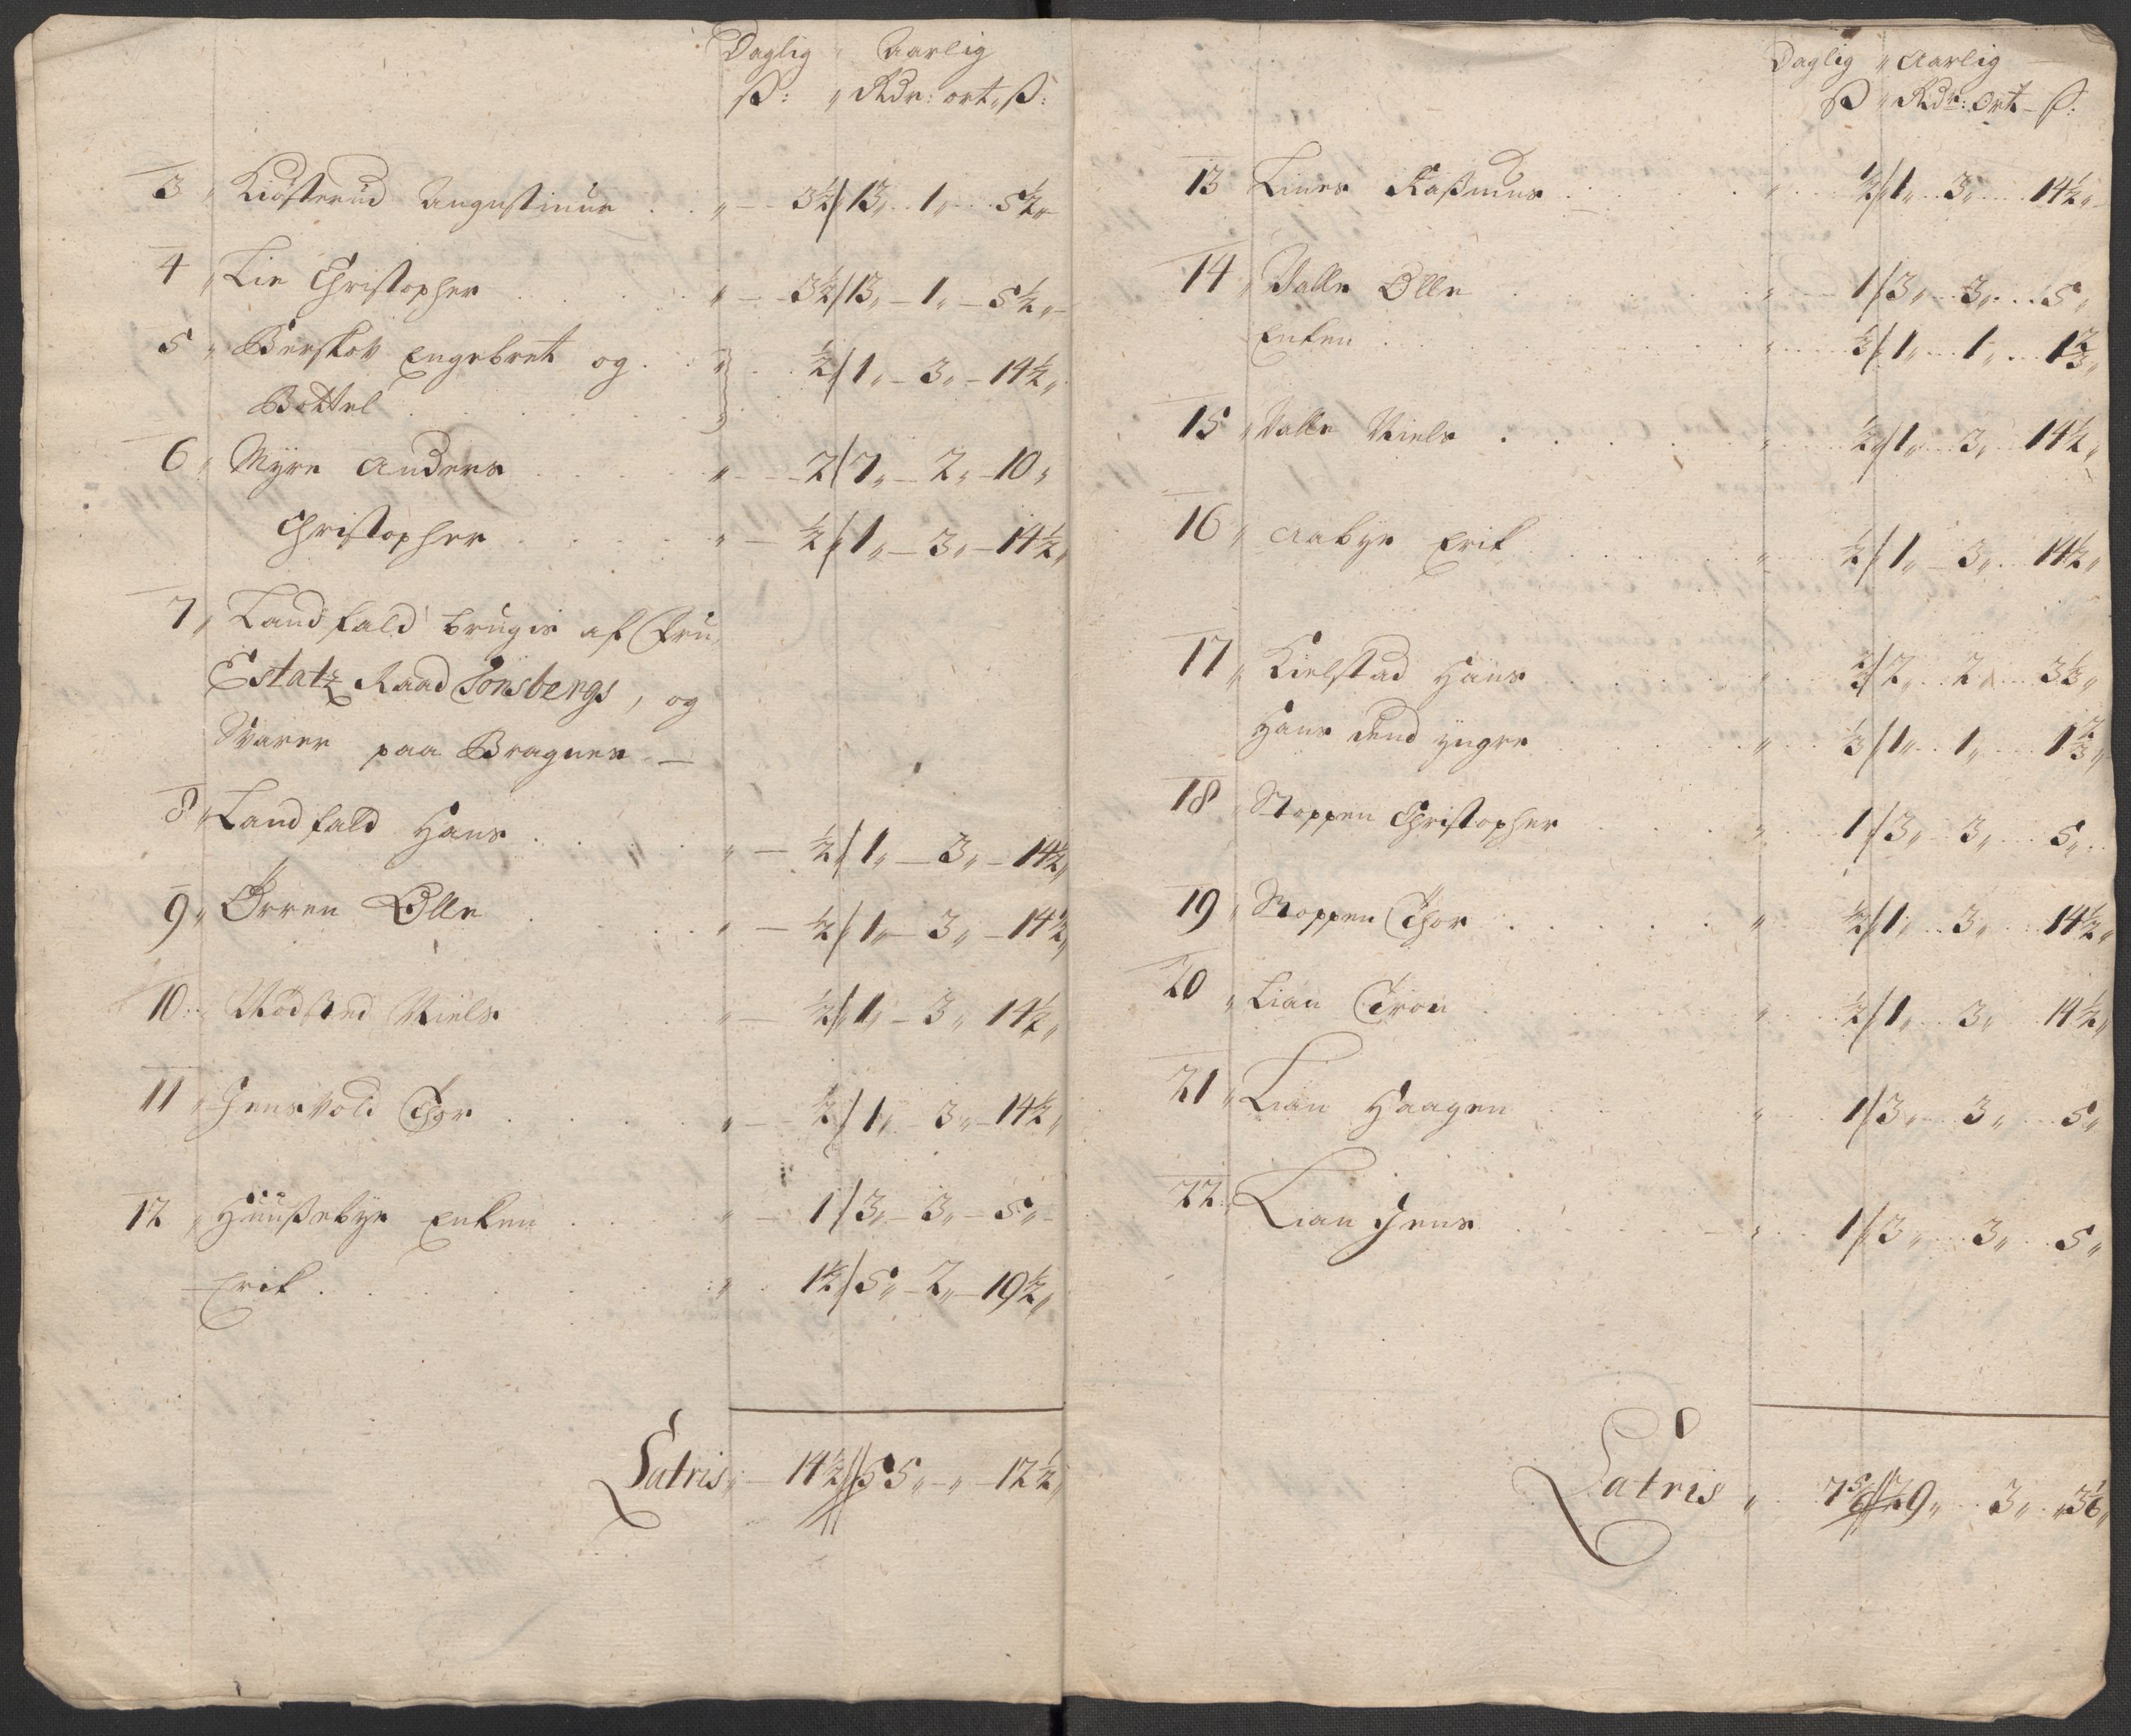 Daglig „ Aarlig
ß: „ Rdr: ort „ ß:
3 „ Kiösterud Augustinus . . „ — 3½ / 13 „ 1 „ 5½ „
4 „ Lie Christopher . . . . „ — 3½ / 13 „ — 1 „ — 5½ „
5 „ Berskov Engebret og . . „ ½ / 1 „ — 3 „ — 14½ „
Bottel . . . . .
6 „ Myre Anders . . . . „ — 2 / 7 „ — 2 „ — 10 „
Christopher . . . . „ — ½ / 1 „ — 3 „ — 14½ „
7 „ Landfald brugis af Fru
Estatz Raad Tonsbergs, og
Svarer paa Bragnes —
8 „ Landfald Hans . . . . „ — ½ / 1 „ — 3 „ — 14½ „
9 „ Örren Olle . . . . „ — ½ / 1 „ — 3 „ — 14½ „
10 „ Niels „ — ½ / 1 „ — 3 „ 14½ „
11 „ Jensvold Thor . . . . „ — ½ / 1 „ 3 „ — 14½ „
12 „ Huußebye Enken . . . „ — 1 / 3 „ — 3 „ — 5 „
Erik . . . . . „ 1½ / 5 „ — 2 „ — 19½ „
Latris „ — 14½ // 55 „ — „ — 12½ „
Daglig „ Aarlig
ß „ Rdr: Ort — ß:
13 Lines Raßmus . . . . „ ½ / 1 „ 3 „ 14½ „
14 „ Valle Olle . . . . „ 1 / 3 „ 3 „ 5 „
Enken . . . . . „ ⅓ / 1 „ 1 „ 1⅔ „
15 „ Valle Niels . . . . „ ½ / 1 „ 3 „ 14½ „
16 „ Aabye Erik . . . . „ ½ / 1 „ — 3 „ 14½ „
17 „ Kielstad Hans . . . . „ ⅔ / 2 „ 2 „ 3⅓ „
Hans dend yngre . . . . „ ⅓ / 1 „ 1 „ 1⅔ „
18 „ Stoppen Christopher . . . „ 1 / 3 „ 3 „ 5 „
19 „ Stoppen Thor . . . . „ ½ / 1 „ 3 „ 14½ „
20 „ Lian Tron . . . . „ ½ / 1 „ 3 „ 14½ „
21 „ Lian Haagen . . . . „ 1 / 3 „ 3 „ 5 „
22 „ Lian Jens . . . . „ 1 / 3 „ 3 „ 5 „
Latris „ 7⅚ // 29 „ 3 „ 3⅙ „